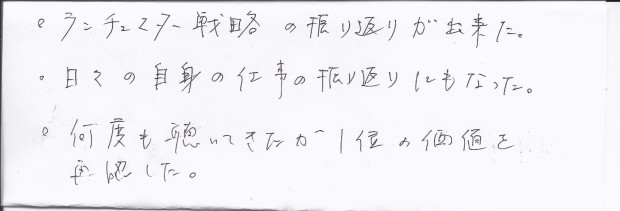 。ランチェスター戦略の振り返りが出来た。
。日々の自身の仕事の振り返りにもなった。
。何度も聴いてきたが1位の価値を
再認した。